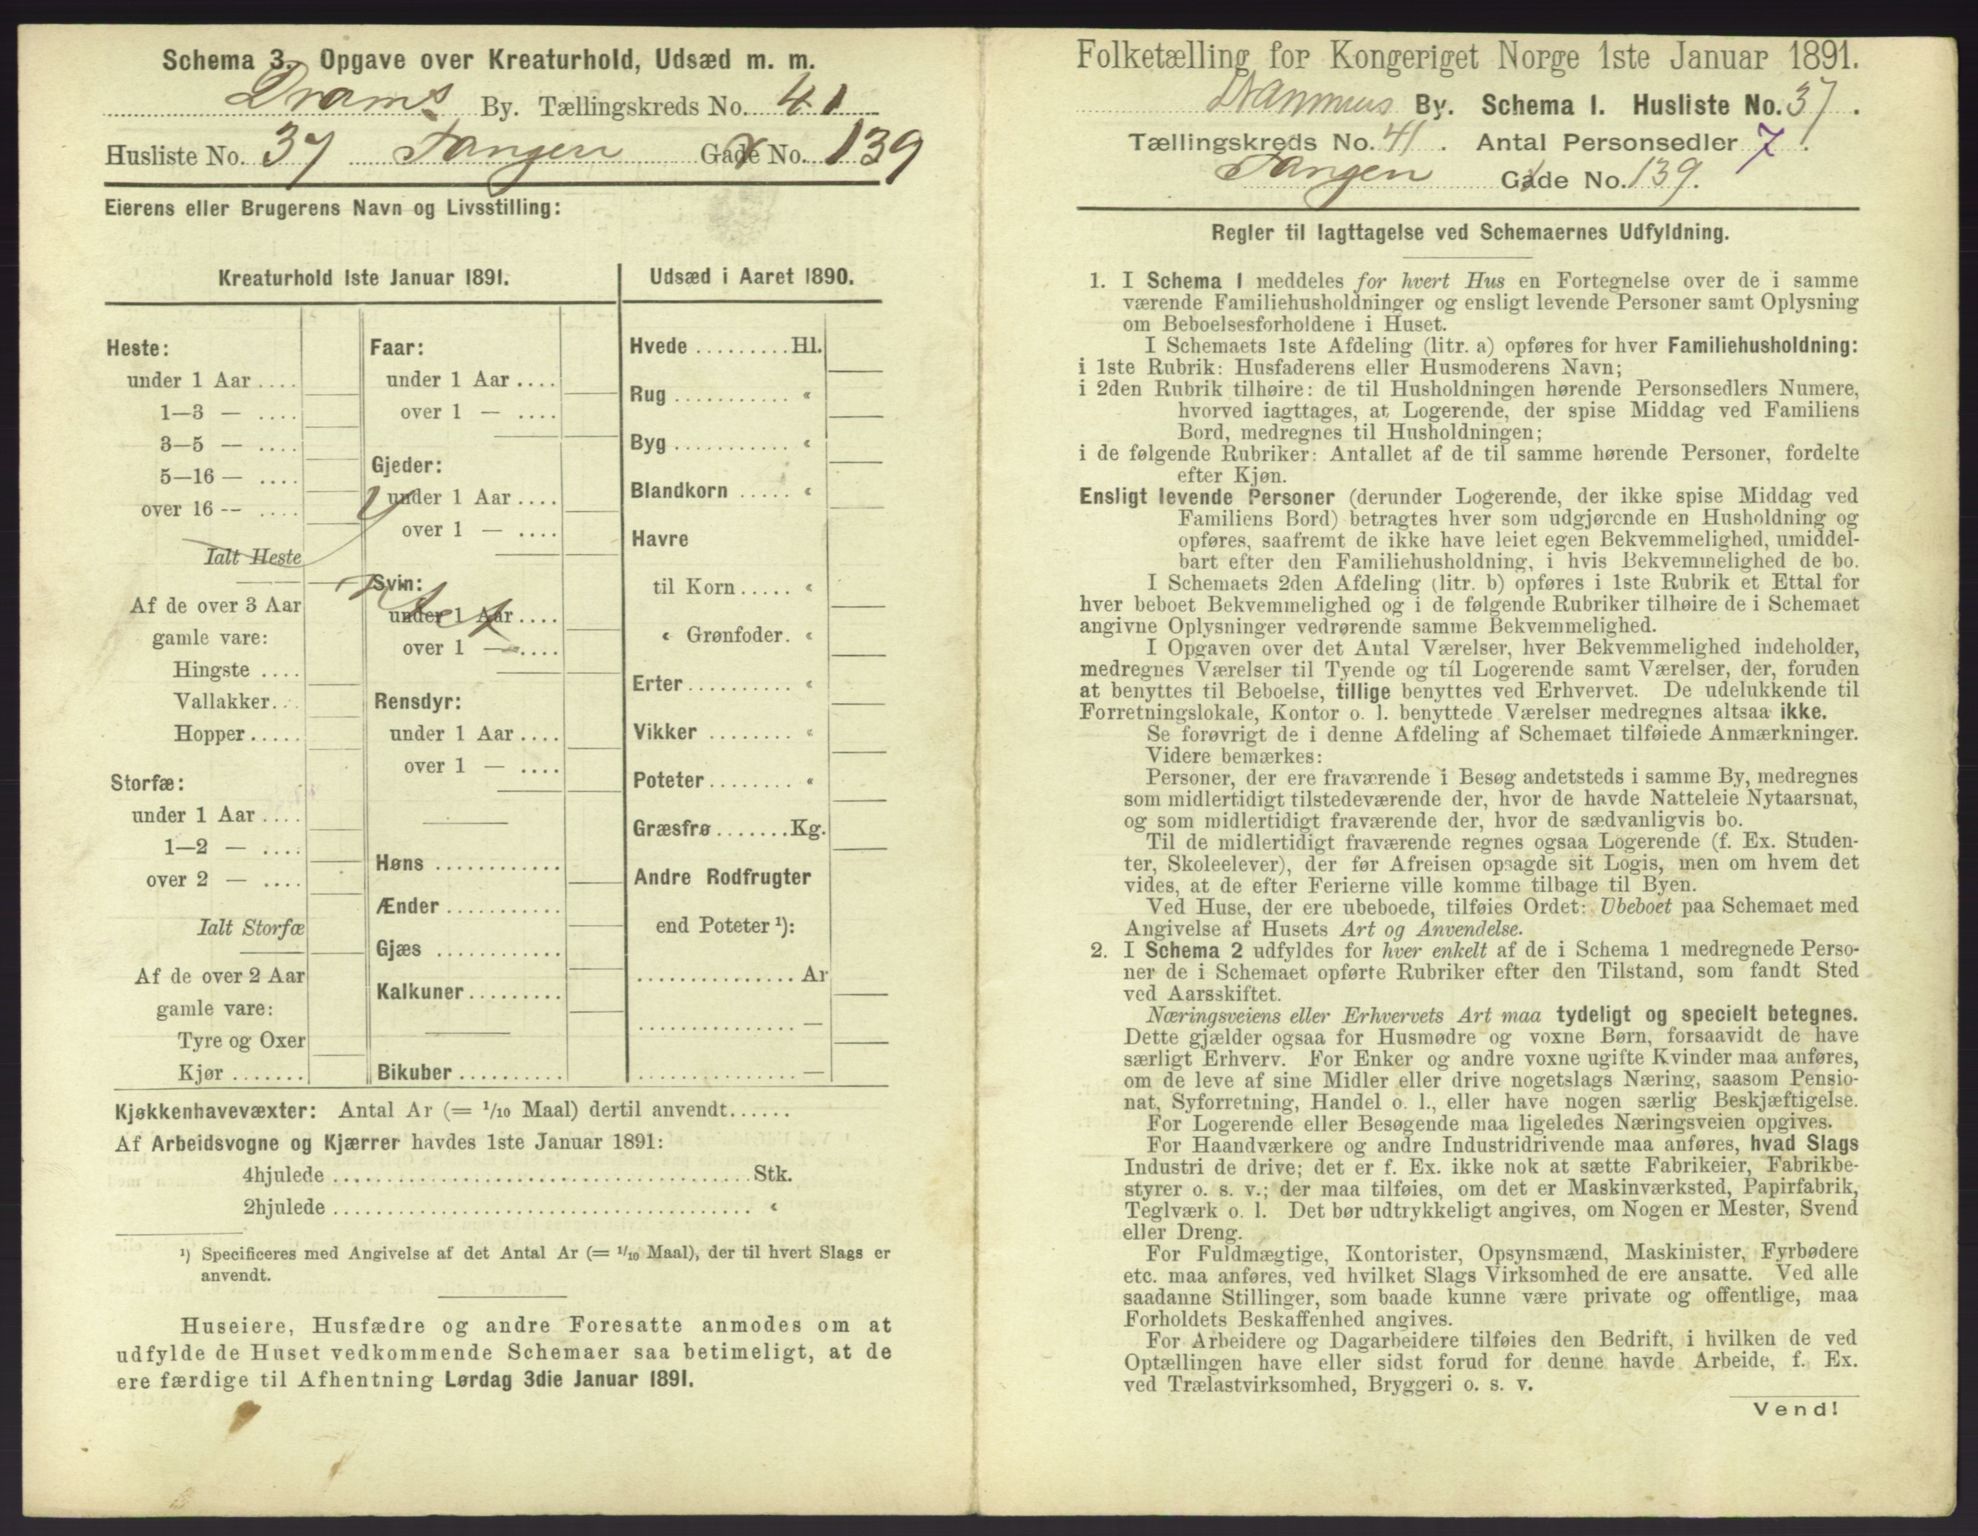 Schema 3. Opgave over Kreaturhold, Udsæd m. m.
Drams By. Tællingskreds No. 41
Husliste No. 37 Tangen Gade No. 139
Eierens eller Brugerens Navn og Livsstilling:
Kreaturhold 1ste Januar 1891.
Heste:
under 1 Aar ....
1—3 — ....
3—5 — ....
5—16 — ....
over 16 -- ....
Ialt Heste
Af de over 3 Aar
gamle vare:
Hingste ....
Vallakker...
Hopper.....
Storfæ:
under 1 Aar ....
1—2 — ....
over 2 — ....
Ialt Storfæ
Af de over 2 Aar
gamle vare:
Tyre og Oxer
Kjør .......
Faar:
under 1 Aar ....
over 1 — ....
Gjeder:
under 1 Aar ....
over 1 — ....
Svin:
under 1 Aar ....
over 1 — ....
Rensdyr:
under 1 Aar ....
over 1 — ....
Høns ............
Ænder ...........
Gjæs ............
Kalkuner.........
Bikuber ..........
Udsæd i Aaret 1890.
Hvede .........Hl.
Rug ........... «
Byg ........... «
Blandkorn ..... «
Havre
til Korn..... «
« Grønfoder. «
Erter.......... «
Vikker ........ «
Poteter........ «
Græsfrø.......Kg.
Andre Rodfrugter
end Poteter ¹):
.............. Ar
.............. —
.............. —
Kjøkkenhavevæxter: Antal Ar (= 1/10 Maal) dertil anvendt......
Af Arbeidsvogne og Kjærrer havdes 1ste Januar 1891:
4hjulede ........................................Stk.
2hjulede ........................................ «
¹) Specificeres med Angivelse af det Antal Ar (= 1/10 Maal), der til hvert Slags er
anvendt.
Huseiere, Husfædre og andre Foresatte anmodes om at
udfylde de Huset vedkommende Schemaer saa betimeligt, at de
ere færdige til Afhentning Lørdag 3die Januar 1891.
Folketælling for Kongeriget Norge 1ste Januar 1891.
Drammens By. Schema 1. Husliste No. 37.
Tællingskreds No. 41. Antal Personsedler 7.
Tangen Gade No. 139.
Regler til Iagttagelse ved Schemaernes Udfyldning.
1. I Schema 1 meddeles for hvert Hus en Fortegnelse over de i samme
værende Familiehusholdninger og ensligt levende Personer samt Oplysning
om Beboelsesforholdene i Huset.
I Schemaets 1ste Afdeling (litr. a) opføres for hver Familiehusholdning:
i 1ste Rubrik: Husfaderens eller Husmoderens Navn;
i 2den Rubrik tilhøire: de til Husholdningen hørende Personsedlers Numere,
hvorved iagttages, at Logerende, der spise Middag ved Familiens
Bord, medregnes til Husholdningen;
i de følgende Rubriker: Antallet af de til samme hørende Personer, fordelte
efter Kjøn.
Ensligt levende Personer (derunder Logerende, der ikke spise Middag ved
Familiens Bord) betragtes hver som udgjørende en Husholdning og
opføres, saafremt de ikke have leiet egen Bekvemmelighed, umiddel-
bart efter den Familiehusholdning, i hvis Bekvemmelighed de bo.
I Schemaets 2den Afdeling (litr. b) opføres i 1ste Rubrik et Ettal for
hver beboet Bekvemmelighed og i de følgende Rubriker tilhøire de i Schemaet
angivne Oplysninger vedrørende samme Bekvemmelighed.
I Opgaven over det Antal Værelser, hver Bekvemmelighed indeholder,
medregnes Værelser til Tyende og til Logerende samt Værelser, der, foruden
at benyttes til Beboelse, tillige benyttes ved Erhvervet. De udelukkende til
Forretningslokale, Kontor o. l. benyttede Værelser medregnes altsaa ikke.
Se forøvrigt de i denne Afdeling af Schemaet tilføiede Anmærkninger.
Videre bemærkes:
Personer, der ere fraværende i Besøg andetsteds i samme By, medregnes
som midlertidigt tilstedeværende der, hvor de havde Natteleie Nytaarsnat,
og som midlertidigt fraværende der, hvor de sædvanligvis bo.
Til de midlertidigt fraværende regnes ogsaa Logerende (f. Ex. Studen-
ter, Skoleelever), der før Afreisen opsagde sit Logis, men om hvem det
vides, at de efter Ferierne ville komme tilbage til Byen.
Ved Huse, der ere ubeboede, tilføies Ordet: Ubeboet paa Schemaet med
Angivelse af Husets Art og Anvendelse.
2. I Schema 2 udfyldes for hver enkelt af de i Schema 1 medregnede Perso-
ner de i Schemaet opførte Rubriker efter den Tilstand, som fandt Sted
ved Aarsskiftet.
Næringsveiens eller Erhvervets Art maa tydeligt og specielt betegnes.
Dette gjælder ogsaa for Husmødre og voxne Børn, forsaavidt de have
særligt Erhverv. For Enker og andre voxne ugifte Kvinder maa anføres,
om de leve af sine Midler eller drive nogetslags Næring, saasom Pensio-
nat, Syforretning, Handel o. l., eller have nogen særlig Beskjæftigelse.
For Logerende eller Besøgende maa ligeledes Næringsveien opgives.
For Haandværkere og andre Industridrivende maa anføres, hvad Slags
Industri de drive; det er f. Ex. ikke nok at sætte Fabrikeier, Fabrikbe-
styrer o. s. v.; der maa tilføies, om det er Maskinværksted, Papirfabrik,
Teglværk o. l. Det bør udtrykkeligt angives, om Nogen er Mester, Svend
eller Dreng.
For Fuldmægtige, Kontorister, Opsynsmænd, Maskinister, Fyrbødere
etc. maa anføres, ved hvilket Slags Virksomhed de ere ansatte. Ved alle
saadanne Stillinger, som baade kunne være private og offentlige, maa
Forholdets Beskaffenhed angives.
For Arbeidere og Dagarbeidere tilføies den Bedrift, i hvilken de ved
Optællingen have eller sidst forud for denne havde Arbeide, f. Ex.
ved Trælastvirksomhed, Bryggeri o. s. v.
Vend!